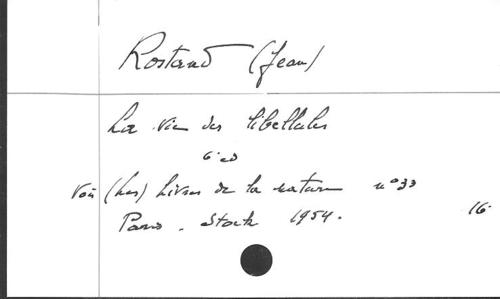 Rostand (Jean)
La vie des libellules
6e ed
Voir (Les) Livres de la nature n°33
Paris. Stock 1954.
16